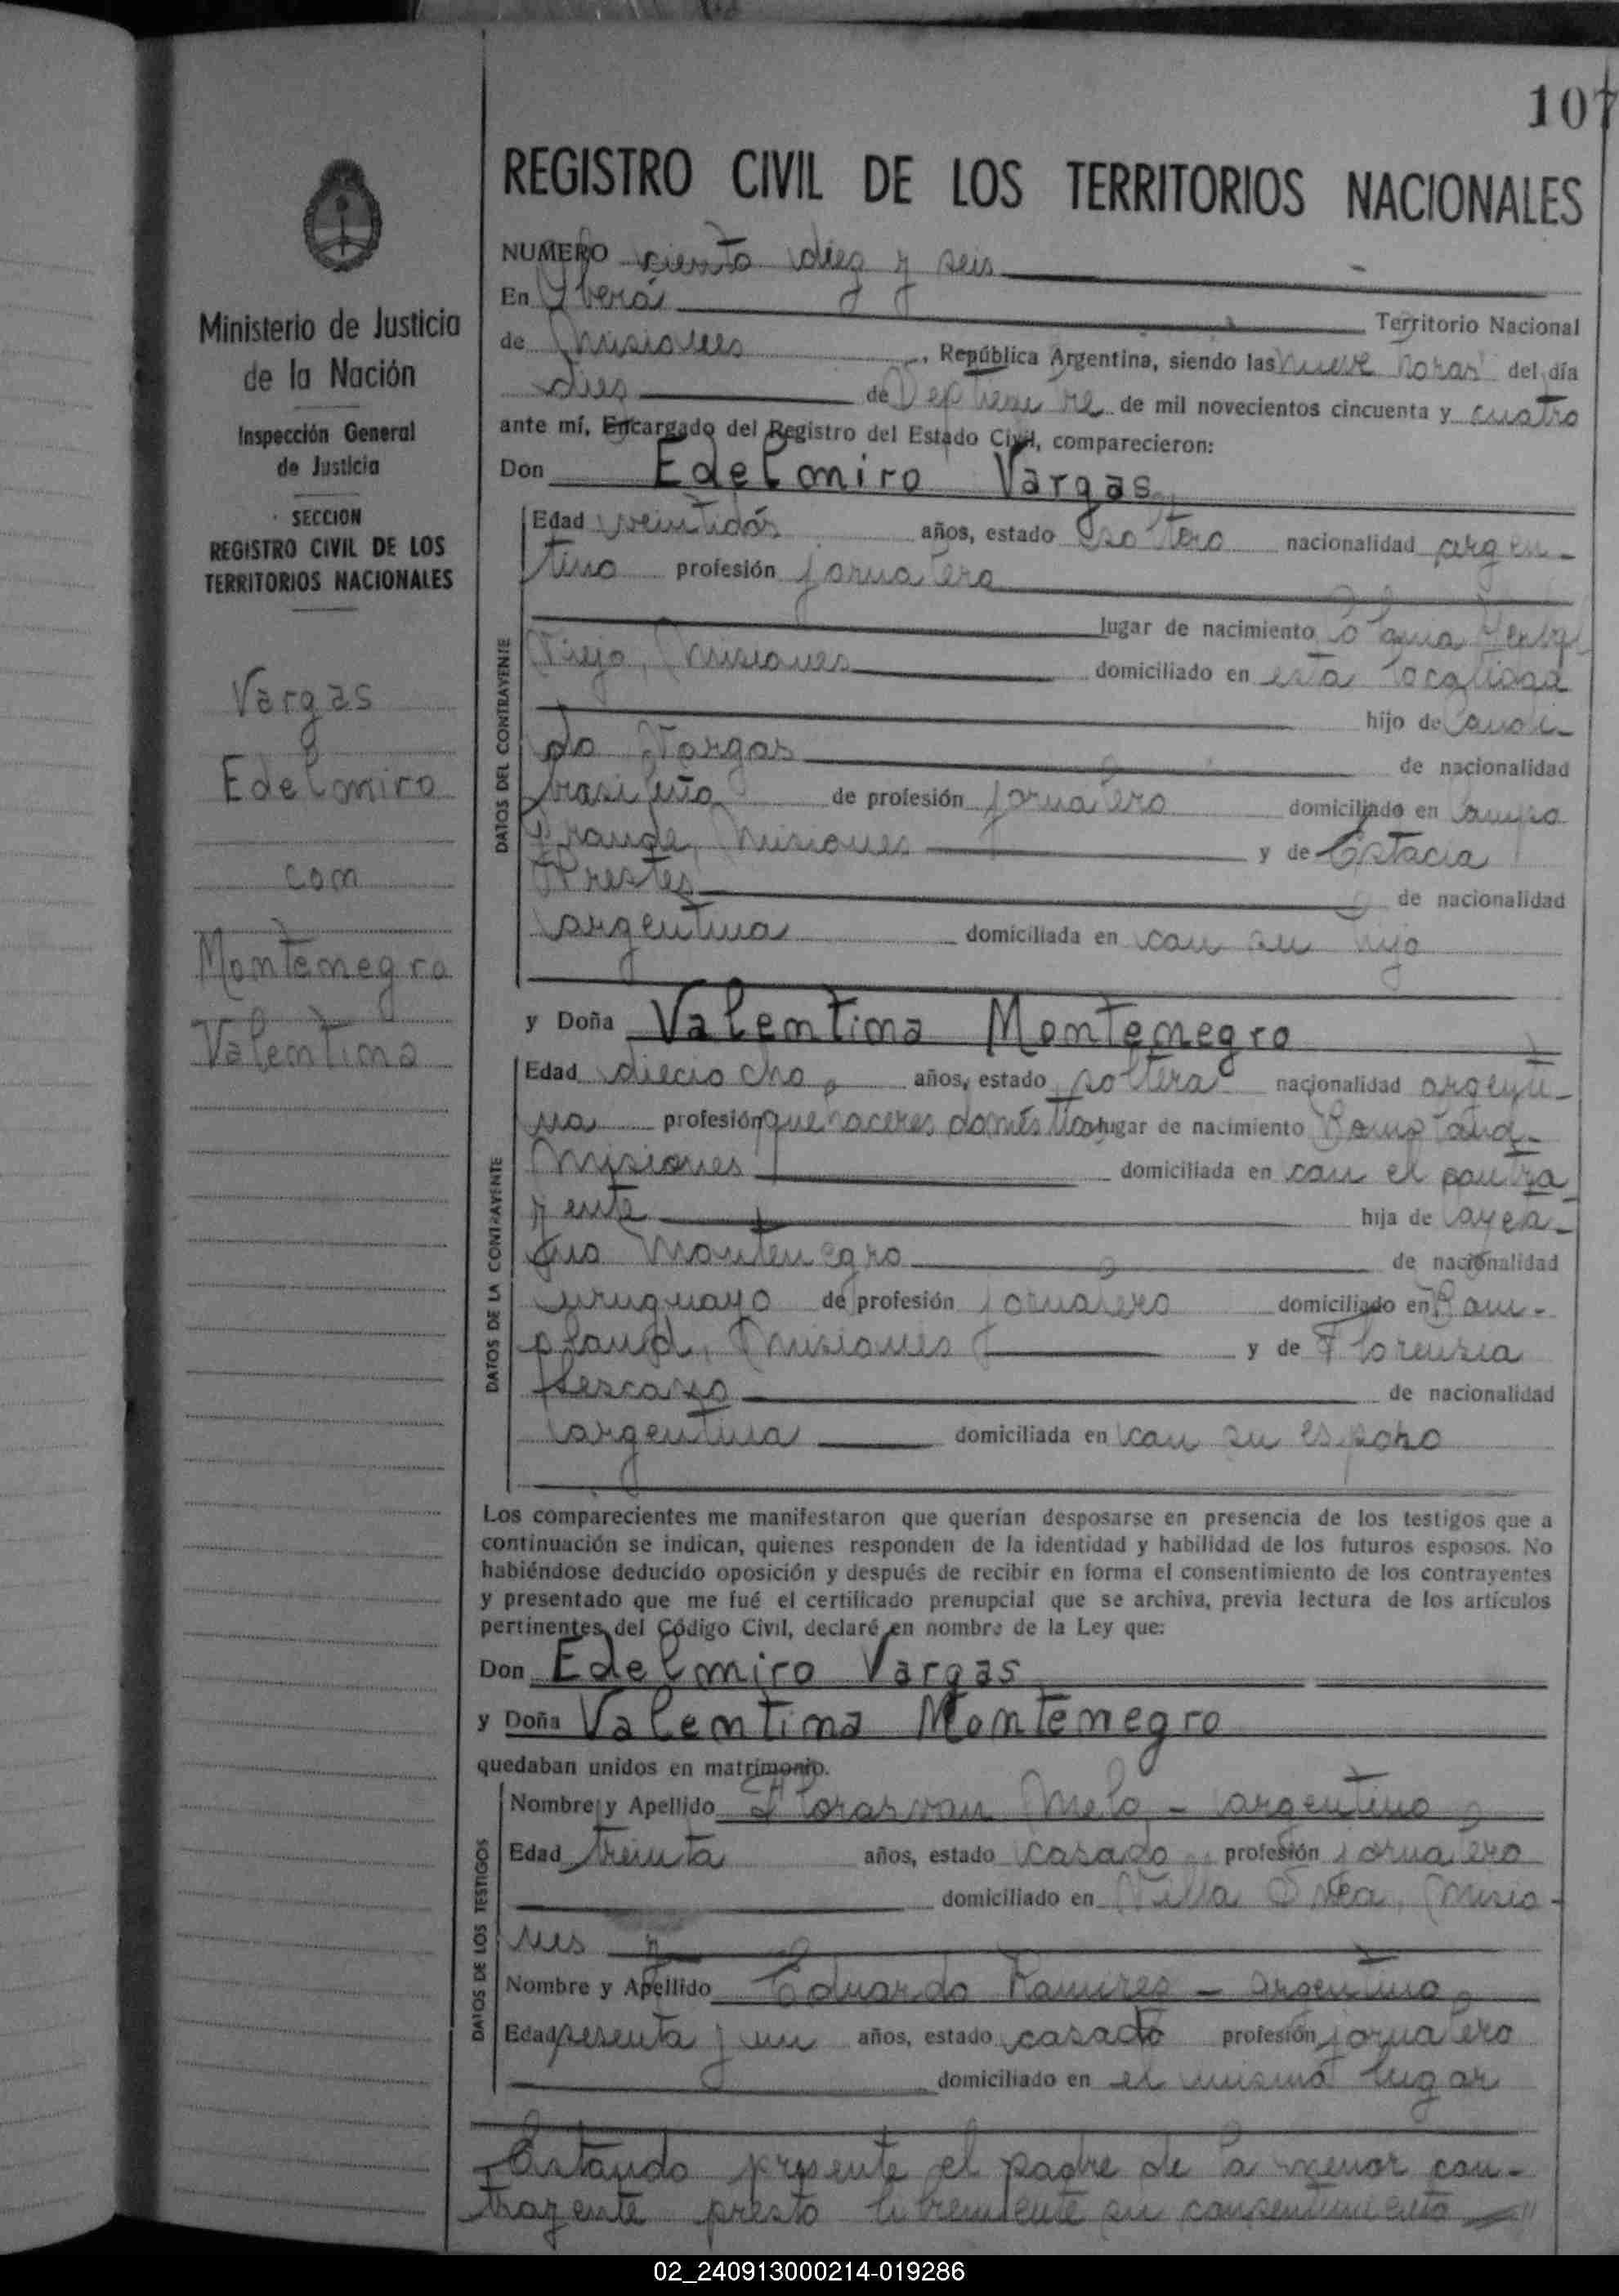 107
REGISTRO CIVIL DE LOS TERRITORIOS NACIONALES
Ministerio de Justicia
de la Nación
Inspección General
de Justicia
SECCION
REGISTRO CIVIL DE LOS
TERRITORIOS NACIONALES
Vargas
Edelmiro
con
Montenegro
Valentina
NUMERO ciento diez y seis
En Yberá Territorio Nacional
de Misiones, República Argentina, siendo las nueve horas del día
diez de Septiembre de mil novecientos cincuenta y cuatro
ante mí, Encargado del Registro del Estado Civil, comparecieron:
Don Edelmiro Vargas
DATOS DEL CONTRAYENTE
Edad veintidós años, estado soltero nacionalidad argen-
tino profesión jornalero
lugar de nacimiento Colonia Yerbal
Viejo, Misiones domiciliado en esta localidad
hijo de Candi-
do Vargas de nacionalidad
brasileña de profesión jornalero domiciliado en Campo
Grande, Misiones y de Estacia
Prestes de nacionalidad
argentina domiciliada en con su hijo
y Doña Valentina Montenegro
DATOS DE LA CONTRAYENTE
Edad dieciocho años, estado soltera nacionalidad argenti-
na profesión quehaceres domésticos lugar de nacimiento Bompland-
Misiones domiciliada en con el contra
yente hija de Cayea-
tano Montenegro de nacionalidad
uruguayo de profesión jornalero domiciliado en Bom-
pland, Misiones y de Florensia
de nacionalidad
argentina domiciliada en con su esposo
Los comparecientes me manifestaron que querían desposarse en presencia de los testigos que a
continuación se indican, quienes responden de la identidad y habilidad de los futuros esposos. No
habiéndose deducido oposición y después de recibir en forma el consentimiento de los contrayentes
y presentado que me fué el certificado prenupcial que se archiva, previa lectura de los artículos
pertinentes del Código Civil, declaré en nombre de la Ley que:
Don Edelmiro Vargas
y Doña Valentina Montenegro
quedaban unidos en matrimonio.
DATOS DE LOS TESTIGOS
Nombre y Apellido Melo - argentino
Edad treinta años, estado casado profesión jornalero
domiciliado en Villa Svea, Misio-
nes
Nombre y Apellido Eduardo Ramires - argentino
Edad sesenta y un años, estado casado profesión jornalero
domiciliado en el mismo lugar
Estando presente el padre de la menor con-
trayente presto libremente su consentimiento
02_240913000214-019286